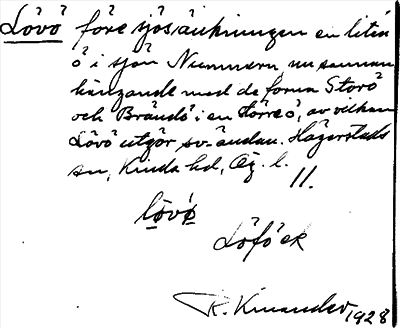 Lövö före sjösänkningen en liten
ö i sjön Nimmern nu samman
hängande med de forna Storö
och Brändö i en större ö, av vilken
Lövö utgör sv-ändan. Hägerstads
sn, Kinda hd, Ög. l.
11.
lövö
Löfö ek
R. Kinander 1928